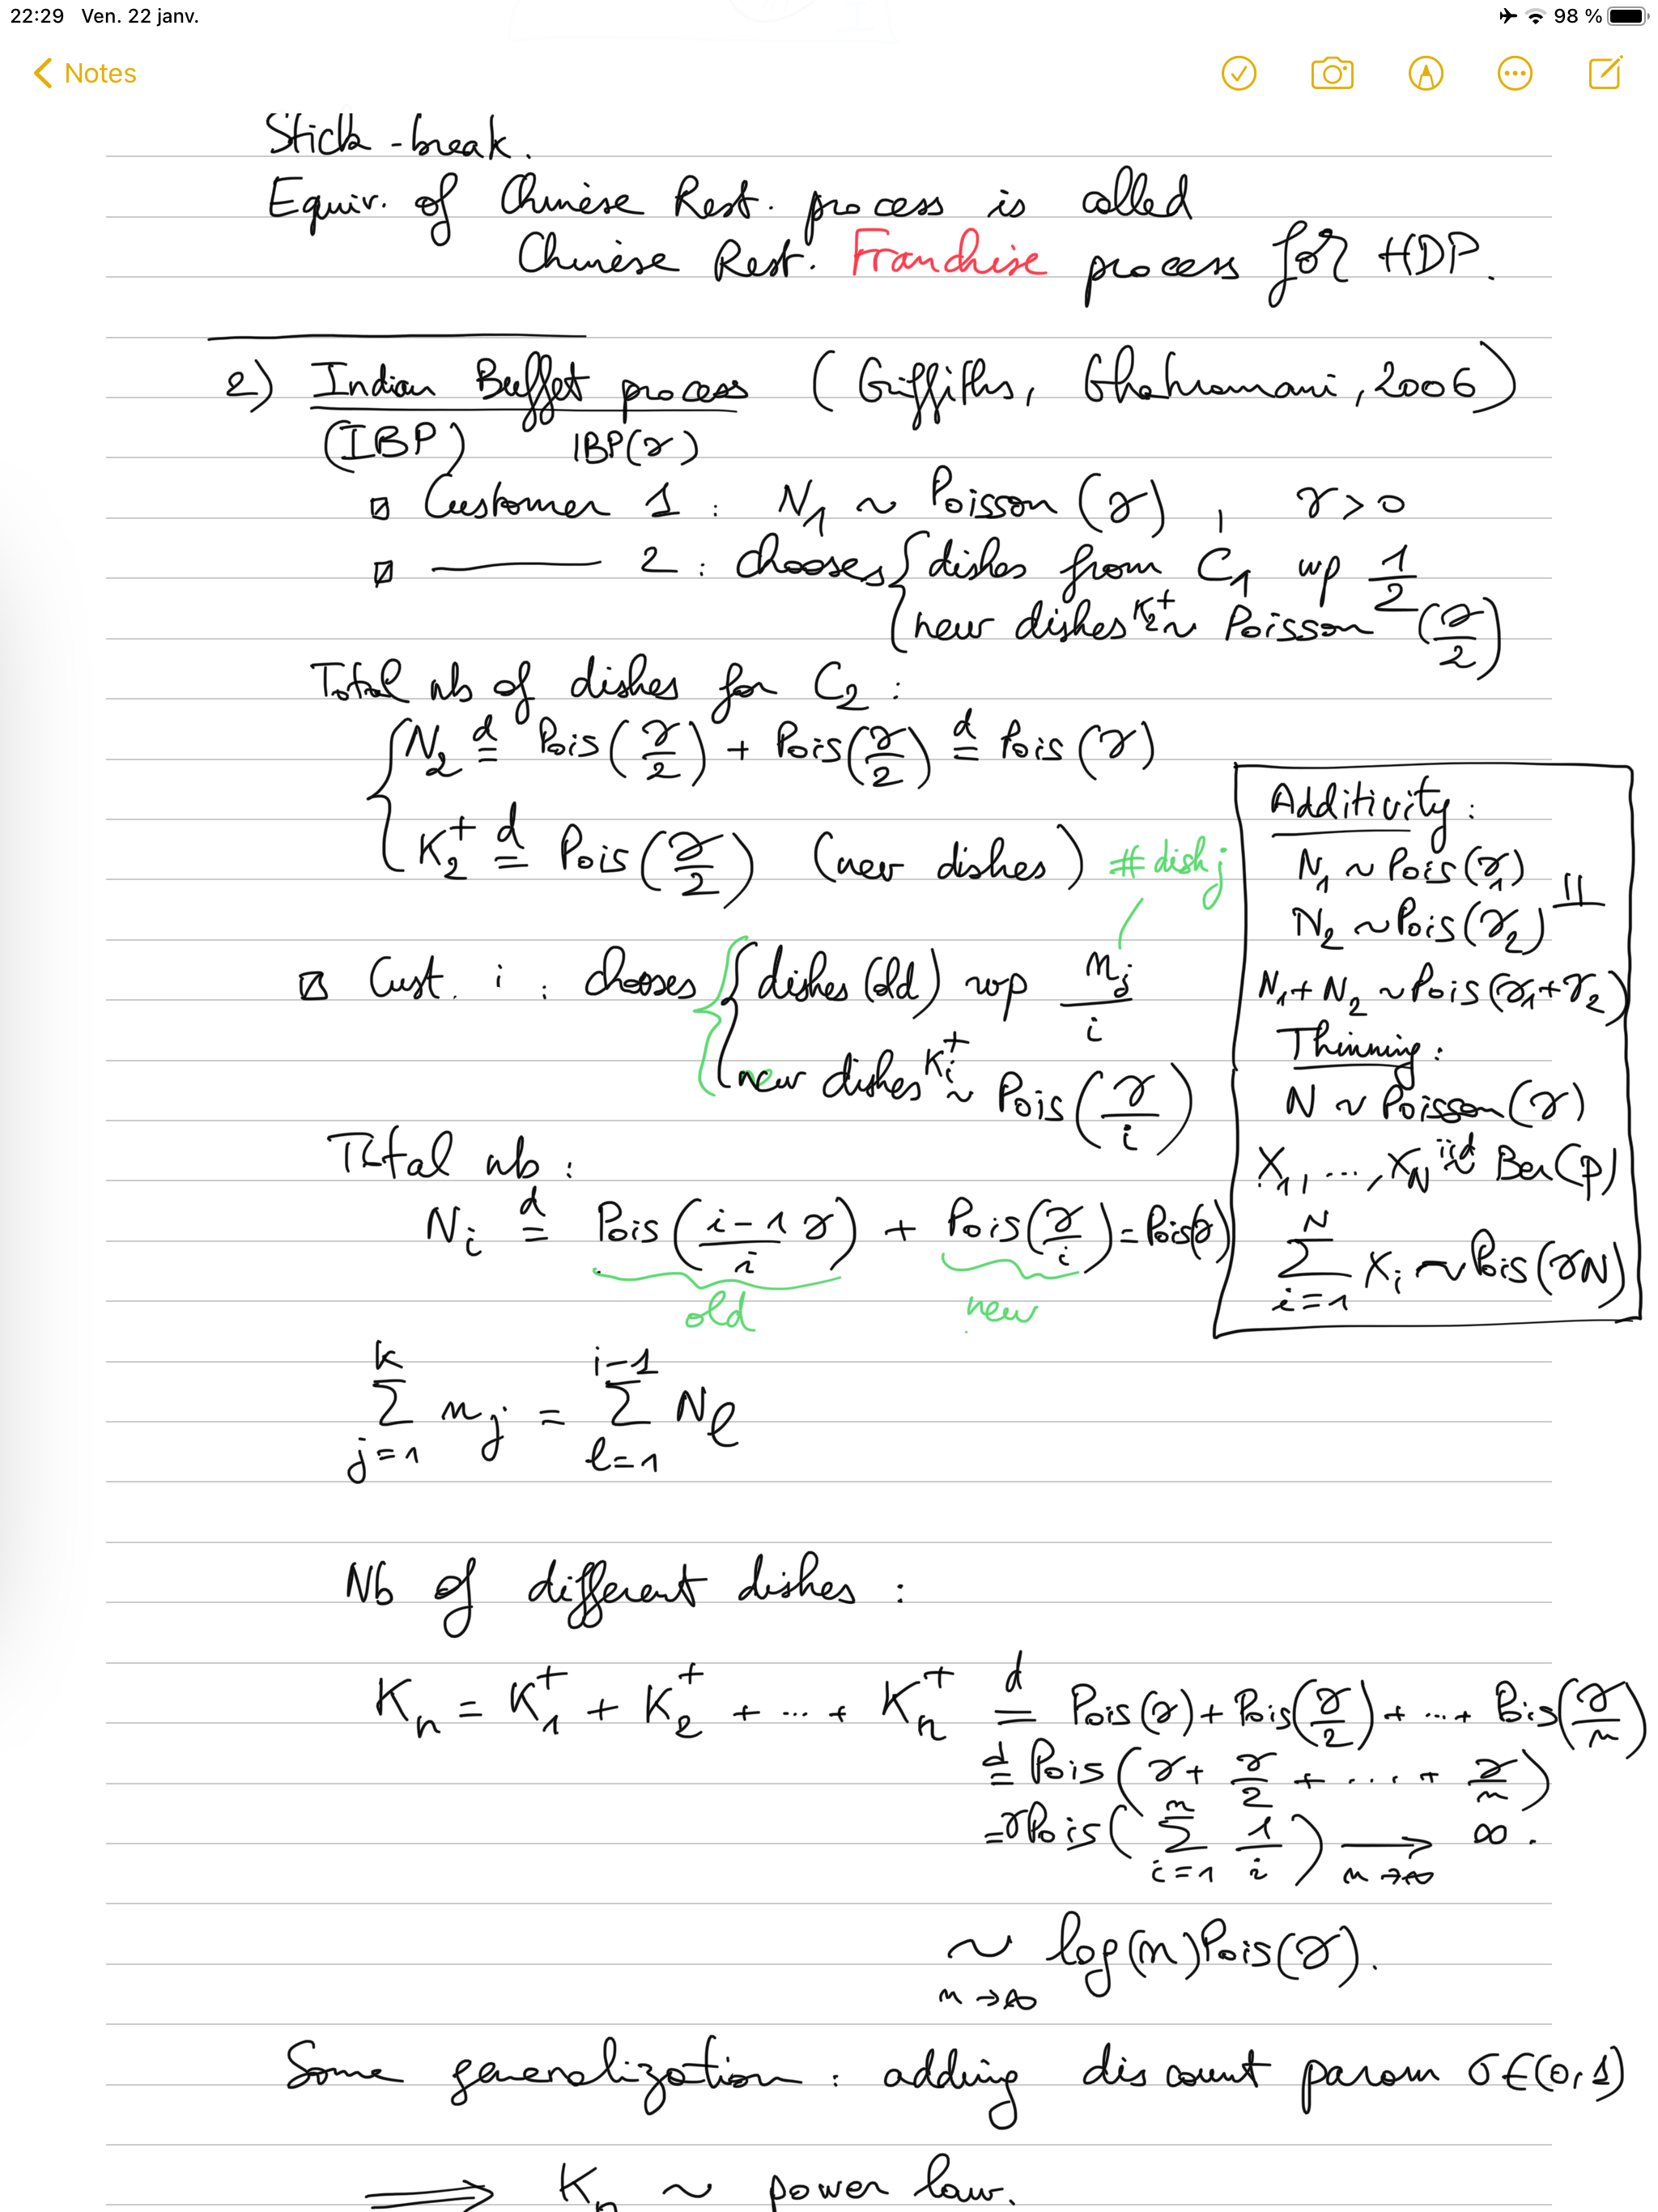 22:29 Ven. 22 janv. 98 %
Notes
Stick-break.
Equiv. of Chinese Rest. process is called
Chinese Rest. Franchise process for HDP.
2) Indian Buffet process (Griffiths, Ghahramani, 2006)
(IBP) IBP(γ)
Customer 1 : N₁ ~ Poisson(γ), γ > 0
—— 2 : chooses { dishes from C₁ wp 1/2
new dishes K₂⁺ ~ Poisson(γ/2)
Total nb of dishes for C₂ :
N₂ =ᵈ Pois(γ/2) + Pois(γ/2) =ᵈ Pois(γ)
K₂⁺ =ᵈ Pois(γ/2) (new dishes) # dish j
Cust. i : chooses { dishes (old) wp m_j/i
new dishes K_i⁺ ~ Pois(γ/i)
Total nb :
N_i =ᵈ Pois((i-1)/i γ) + Pois(γ/i) = Pois(γ)
old new
Additivity :
N₁ ~ Pois(γ₁)
N₂ ~ Pois(γ₂) ⊥⊥
N₁ + N₂ ~ Pois(γ₁+γ₂)
Thinning :
N ~ Poisson(γ)
X₁, ..., X_N iid ~ Ber(p)
∑_{i=1}^{N} X_i ~ Pois(γN)
∑_{j=1}^{K} m_j = ∑_{l=1}^{i-1} N_l
Nb of different dishes :
K_n = K₁⁺ + K₂⁺ + ... + K_n⁺ =ᵈ Pois(γ) + Pois(γ/2) + ... + Pois(γ/n)
=ᵈ Pois(γ + γ/2 + .... + γ/n)
= γPois(∑_{i=1}^{n} 1/i) →_{n→∞} ∞.
~_{n→∞} log(n)Pois(γ).
Some generalization : adding discount param σ∈(0,1)
⟹ K_n ~ power law.